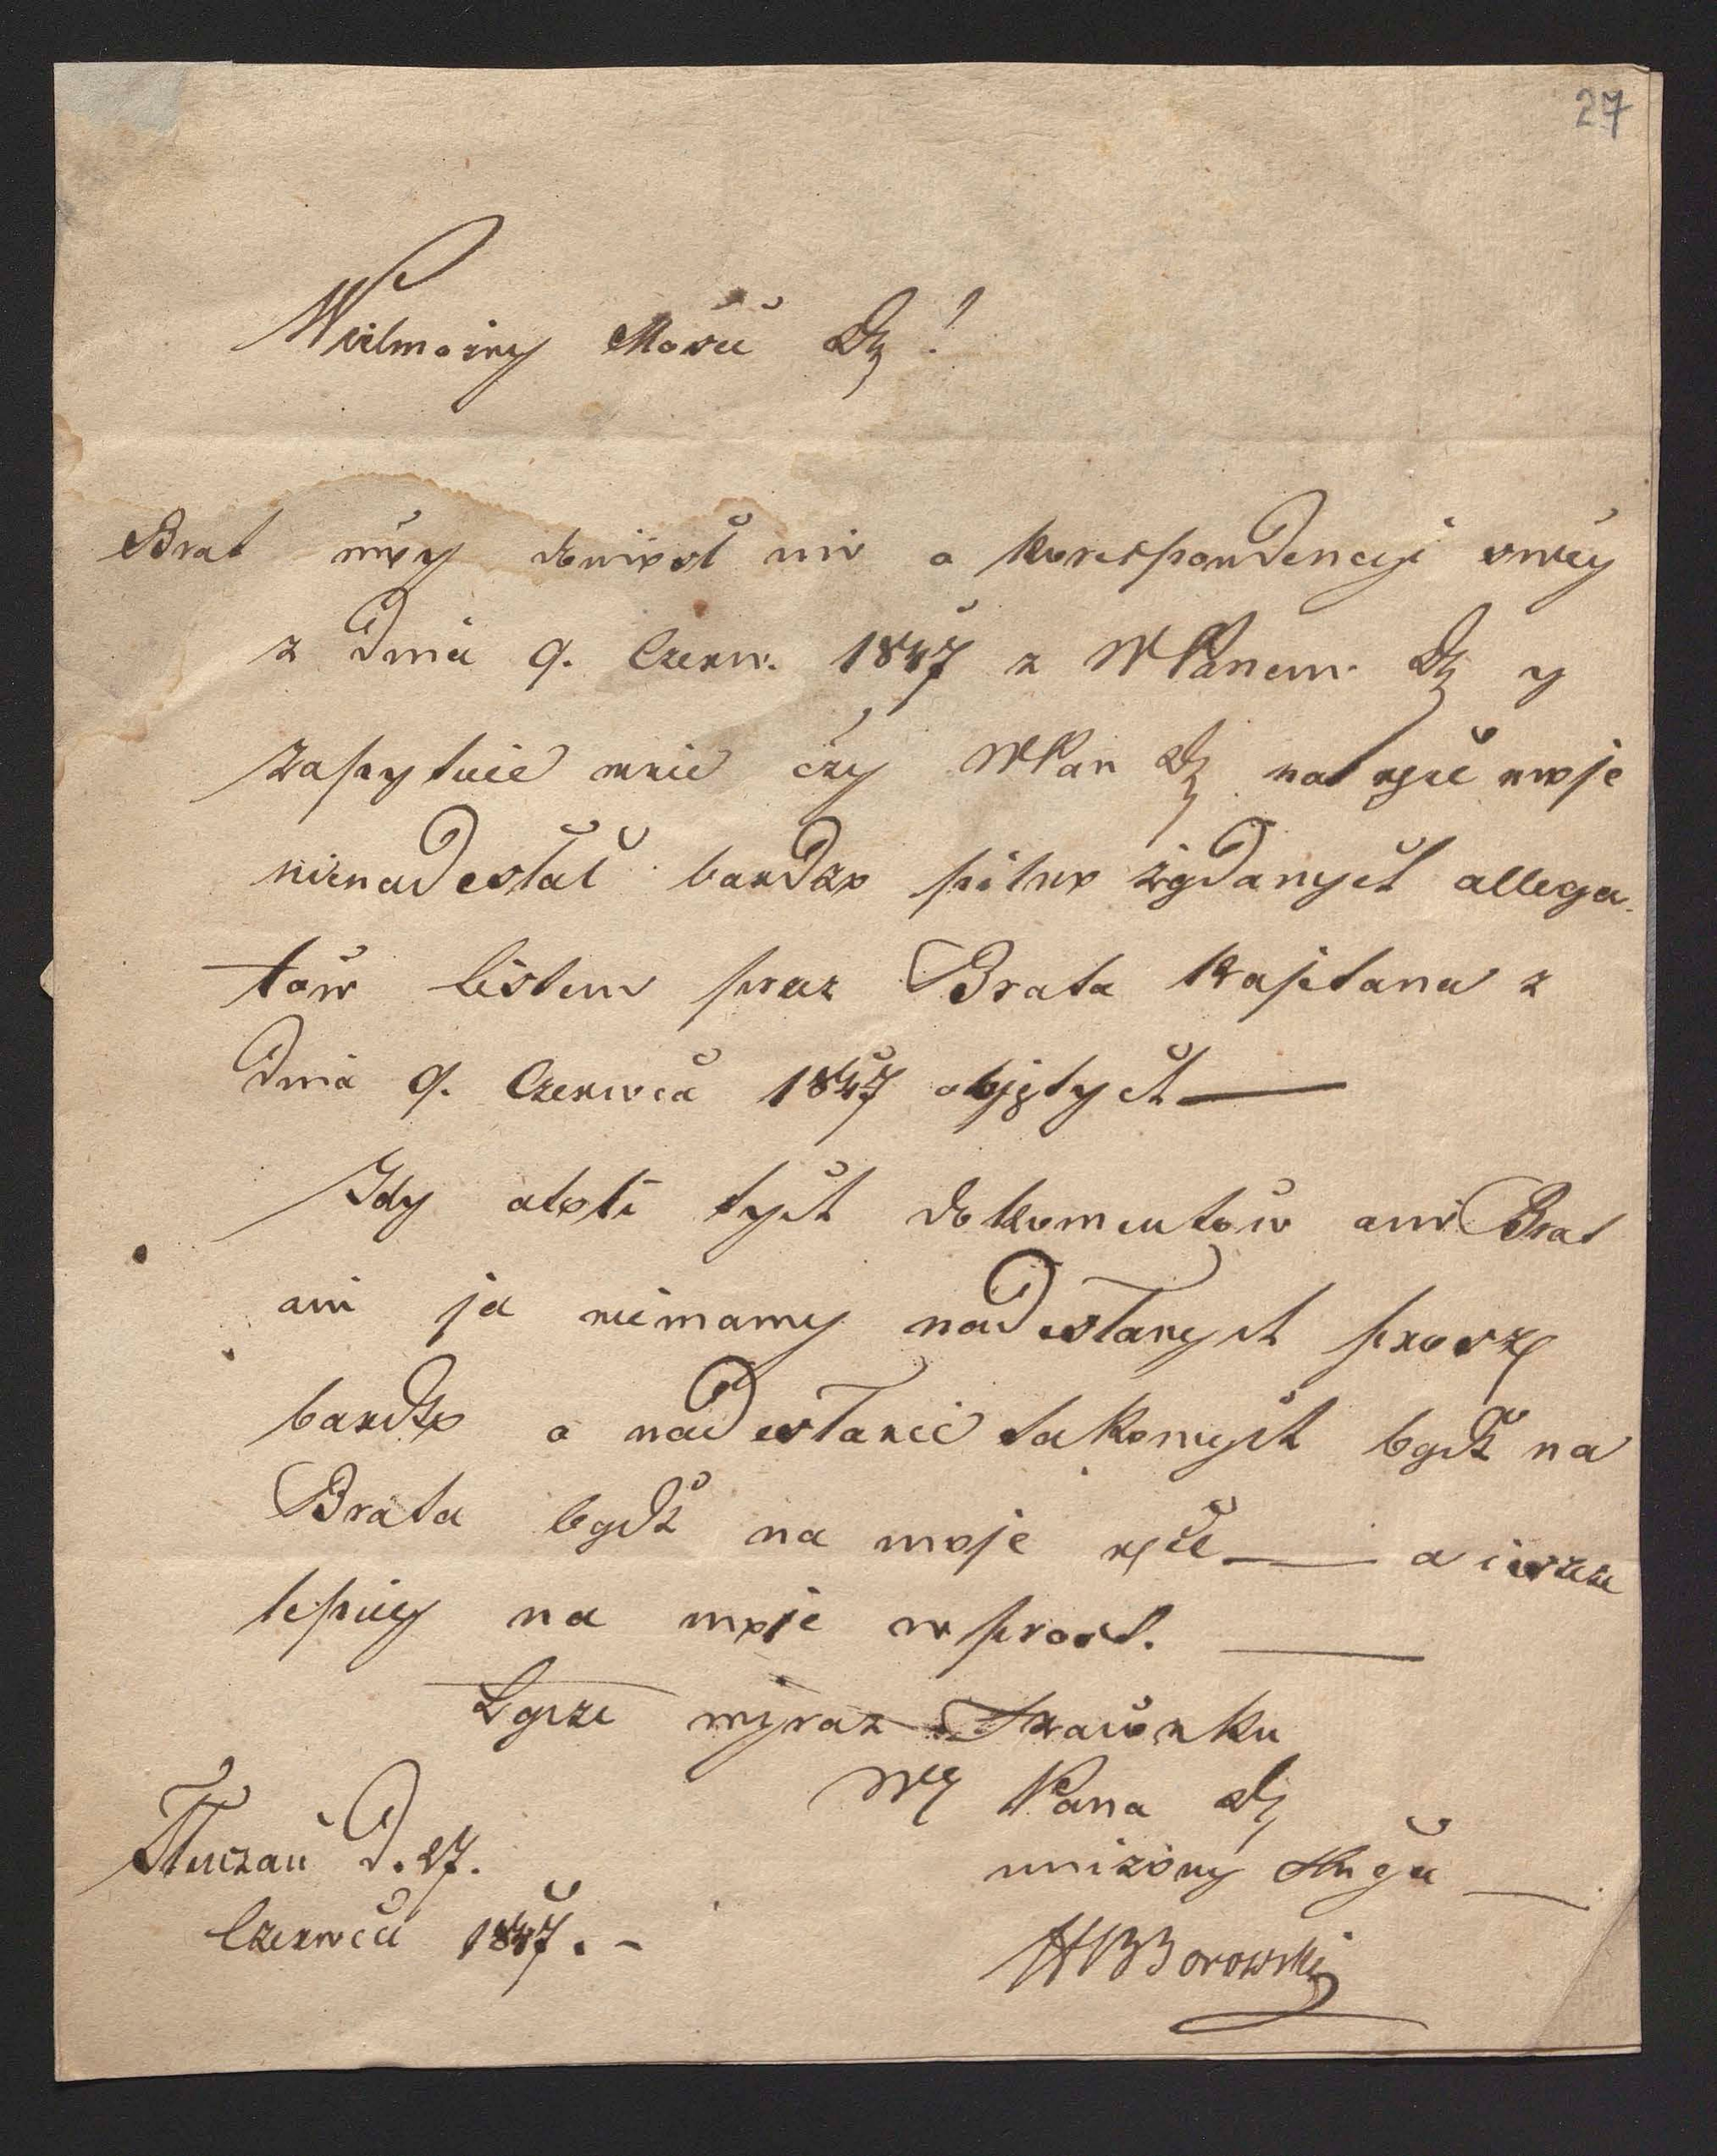 27
Wielmożny Mości Dz!
Brat móy doniósł mi o korespondencyi swéy
z Dnia 9. Czerw. 1847 z WPanem Dz y
zapytuie mnie czy WPan Dz na ręce moje
nienadesłał bardzo pilno żądanych allega-
tów listem przez Brata Kapitana z
Dnia 9. Czerwca 1847 objętych —
Gdy atoli tych dokumentów ani Brat
ani ja niemamy nadesłanych proszę
bardzo o nadesłanie takowych bądź na
Brata bądź na moje ręce — a ieszcze
lepiey na moje wprost. —
Łączę wyraz Szacunku
WPana Dz
Tłuczań D. 27. uniżony sługa —
Czerwca 1847. - HBBorowski